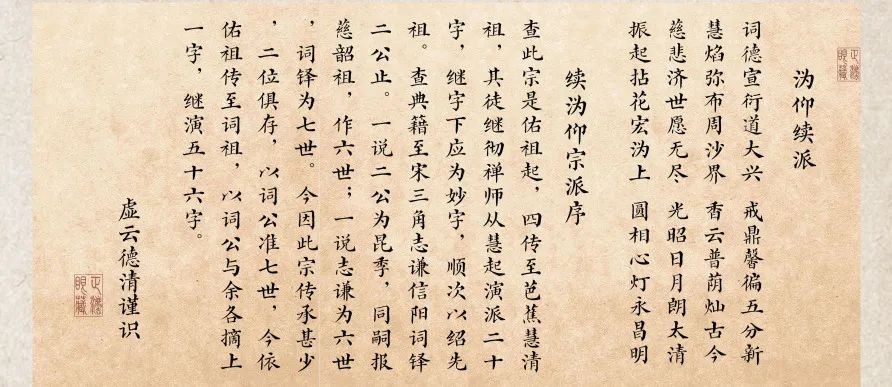 沩仰续派
词德宣衍道大兴 戒鼎馨徧五分新
慧焰弥布周沙界 香云普荫灿古今
慈悲济世愿无尽 光昭日月朗太清
振起拈花宏沩上 圆相心灯永昌明
续沩仰宗派序
查此宗是佑祖起，四传至芭蕉慧清
祖，其徒继彻禅师从慧起演派二十
字，继字下应为妙字，顺次以绍先
祖。查典籍至宋三角志谦信阳词铎
二公止。一说二公为昆季，同嗣报
慈韶祖，作六世；一说志谦为六世
，词铎为七世。今因此宗传承甚少
，二位俱存，以词公准七世，今依
佑祖传至词祖，以词公与余各摘上
一字，继演五十六字。
虚云德清谨识
正法
眼藏
正法
眼藏